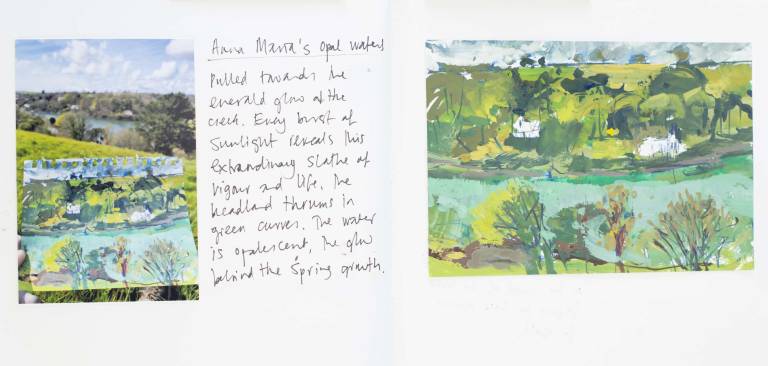 Anna Maria's opal waters
Pulled towards the
emerald glow of the
creek. Every burst of
Sunlight reveals this
extraordinary swathe of
vigour and life. The
headland thrums in
green curves. The water
is opalescent, the glow
behind the Spring growth.